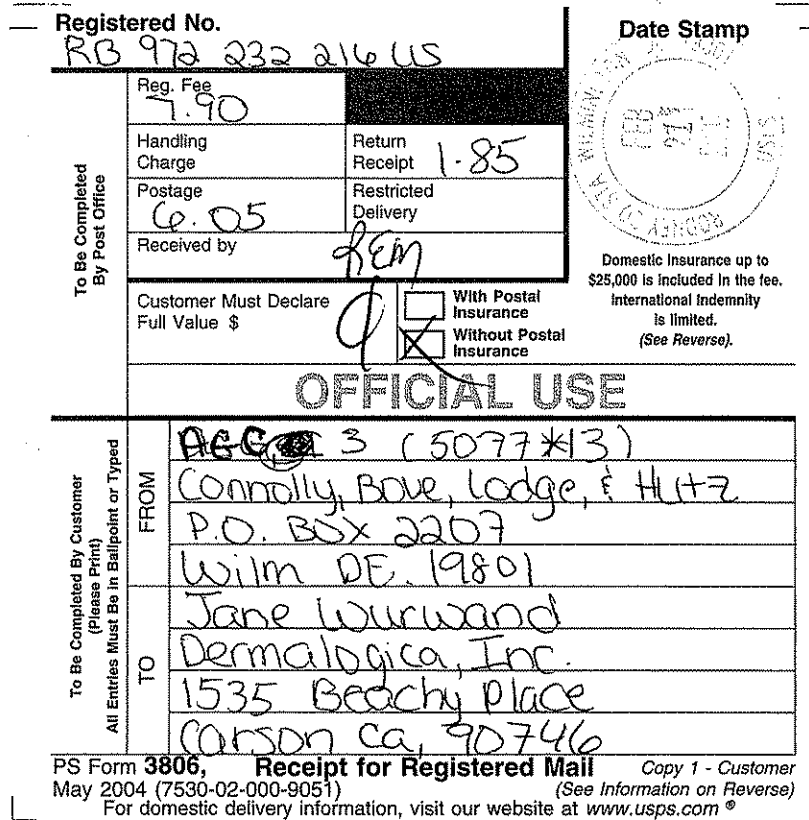 Registered No.
RB 972 232 216 US
Date Stamp
To Be Completed
By Post Office
Reg. Fee
7.90
Handling
Charge
Return
Receipt 1.85
Postage
6.05
Restricted
Delivery
Received by
REM
RODNEY SQ STA WILMINGTON
FEB
USPS
Domestic Insurance up to
$25,000 is included in the fee.
International Indemnity
is limited.
(See Reverse).
Customer Must Declare
Full Value $
With Postal
Insurance
Without Postal
Insurance
OFFICIAL USE
To Be Completed By Customer
(Please Print)
All Entries Must Be in Ballpoint or Typed
FROM
3 (5077*13)
Connolly, Bove, Lodge, & Hutz
P.O. BOX 2207
Wilm DE. 19801
TO
Jane Wurwand
Dermalogica, Inc.
1535 Beachy Place
Carson Ca, 90746
PS Form 3806, Receipt for Registered Mail Copy 1 - Customer
May 2004 (7530-02-000-9051) (See Information on Reverse)
For domestic delivery information, visit our website at www.usps.com ®